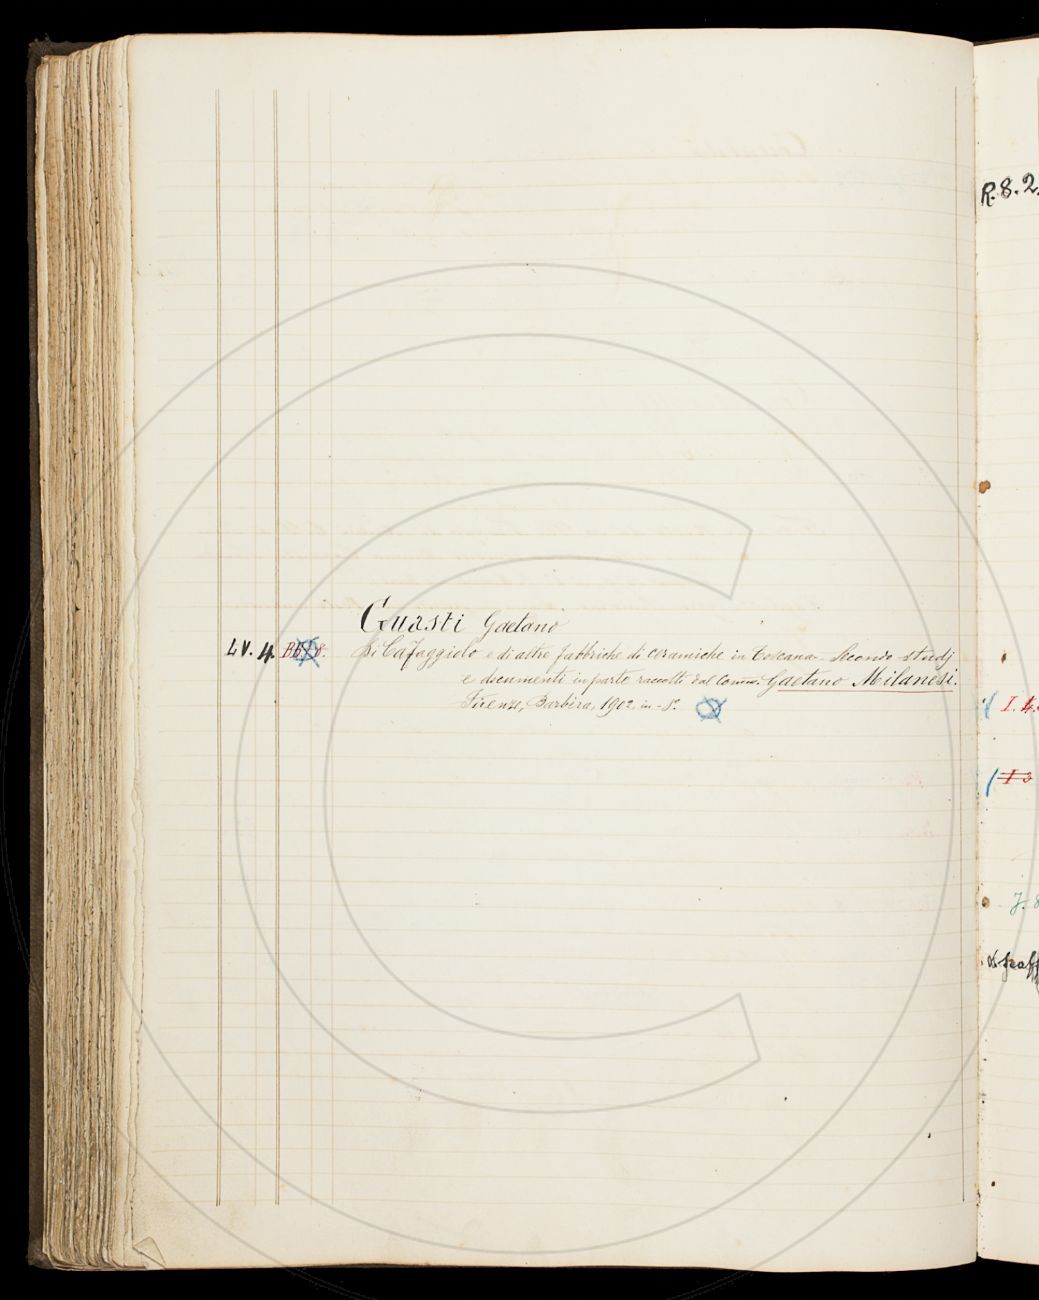 R. 8. 2.
Guasti Gaetano
LV. 4. Di Cafaggiolo e di altre fabbriche di ceramiche in Toscana - Secondo studj
e documenti in parte raccolti dal Comm. Gaetano Milanesi.
Firenze, Barbèra, 1902, in-8°.
I. 4.